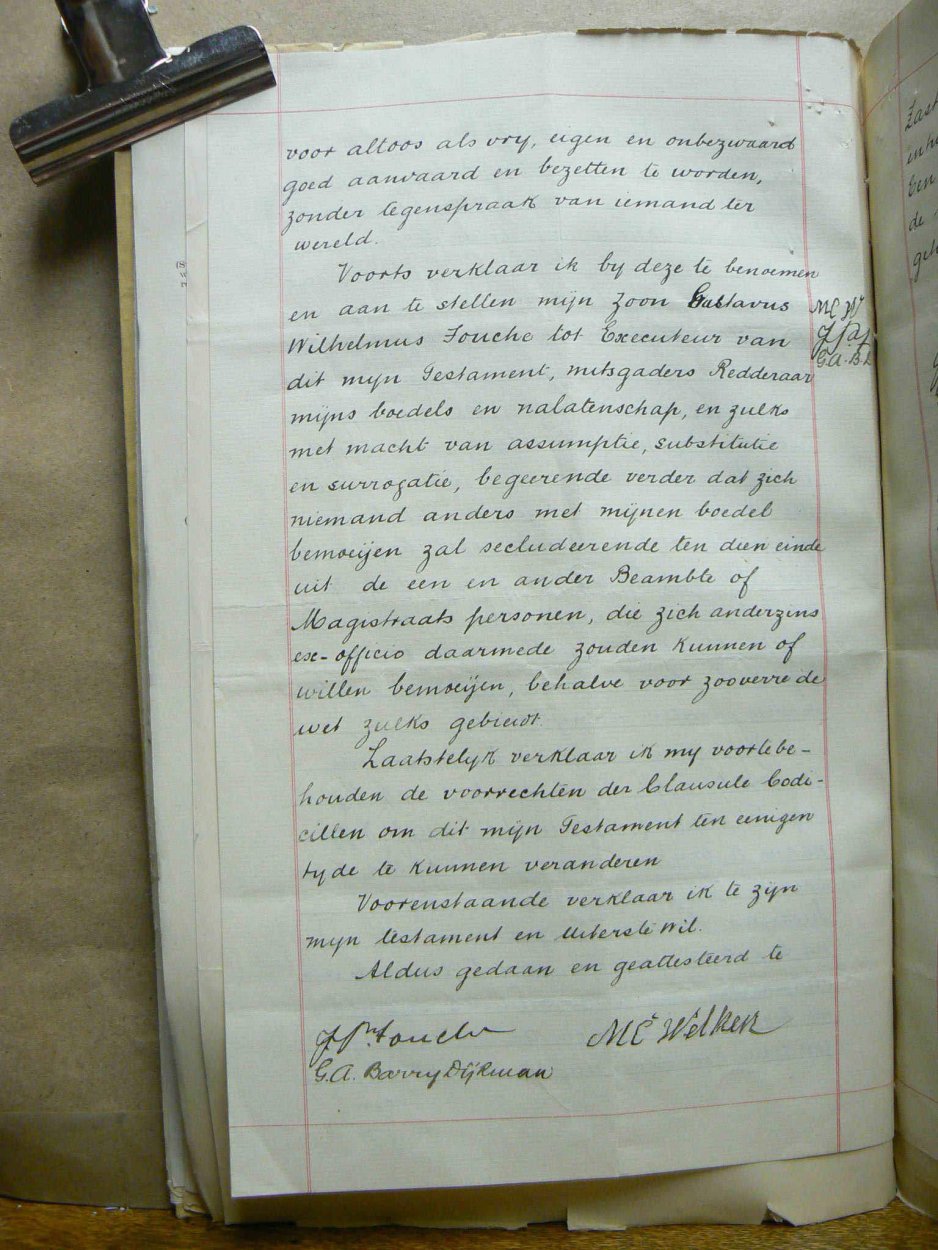 voor altoos als vry, eigen en onbezwaard
goed aanvaard en bezetten te worden,
zonder tegenspraak van iemand ter
wereld.
Voorts verklaar ik by deze te benoemen
en aan te stellen mijn zoon Gustavus
Wilhelmus Fouche tot Executeur van
dit mijn Testament, mitsgaders Redderaar
mijns boedels en nalatenschap, en zulks
met macht van assumptie, substitutie
en surrogatie, begeerende verder dat zich
niemand anders met mijnen boedel
bemoeijen zal secludeerende ten dien einde
uit de een en ander Beambte of
Magistraats personen, die zich anderzins
ex-officio daarmede zouden kunnen of
willen bemoeijen, behalve voor zooverre de
wet zulks gebiedt.
Laatstelyk verklaar ik my voortebe-
houden de voorrechten der Clausule Codi-
cillen om dit mijn Testament ten eenigen
tyde te kunnen veranderen
Voorenstaande verklaar ik te zijn
mijn testament en Uiterste Wil.
Aldus gedaan en geattesteerd te
Fouche
M C Welken
G.A. Barry Dijkman
M C W
G.A.B.D